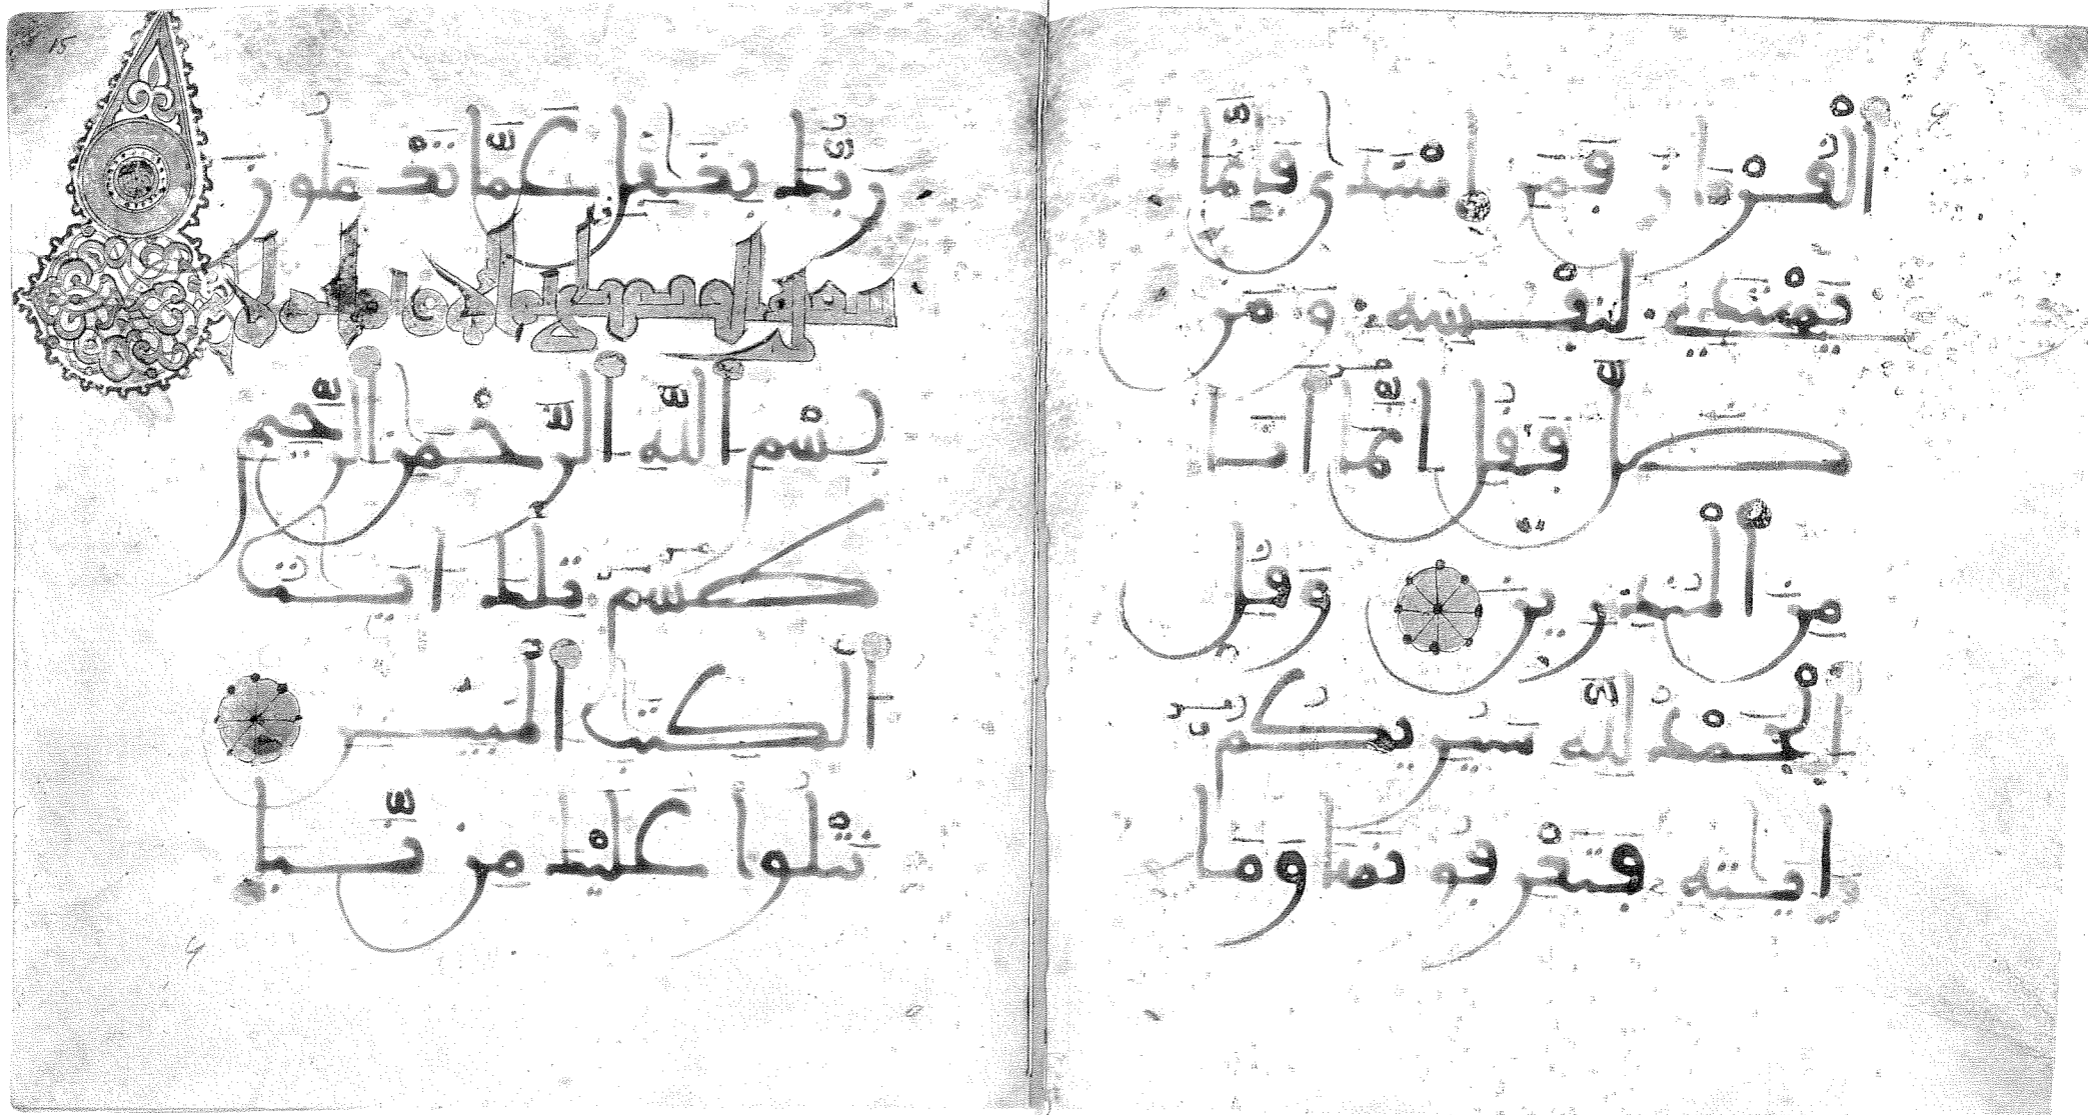 اَ۬لْقُرْءَانَ فَمَنِ اِ۪هْتَد۪ىٰ فَإِنَّمَا
يَهْتَدِي لِنَفْسِهِۦ وَمَن
ضَلَّ فَقُلِ اِنَّمَآ أَنَا
مِنَ اَ۬لْمُنذِرِينَ وَقُلِ
اِ۬لْحَمْدُ لِلهِ سَيُرِيكُمُۥٓ
ءَايَٰتِهِۦ فَتَعْرِفُونَهَا وَمَا
رَبُّكَ بِغَٰفِلٍ عَمَّا تَعْمَلُونَ
بِسْمِ اِ۬للَّهِ اِ۬لرَّحْمَٰنِ اِ۬لرَّحِيمِ
طَسِٓمِّٓ تِلْكَ ءَايَٰتُ
اُ۬لْكِتَٰبِ اِ۬لْمُبِينِ
نَتْلُوا عَلَيْكَ مِن نَّبَإِ